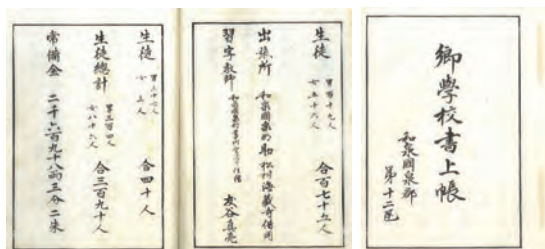 鄉學校書上帳
和泉國泉郡
第十二区
生徒
男百十九人
女五十六人
合百七十五人
出張所
和泉國泉郡助松村海蔵寺借用
習字教師
和泉國泉郡
真亮
生徒
合四十人
生徒總計
男三百四人
女八十六人
合三百九十人
常備金
二千六百九十八両三分二朱